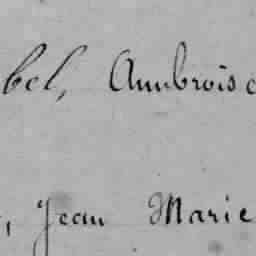 bel, Ambroise
, Jean Marie